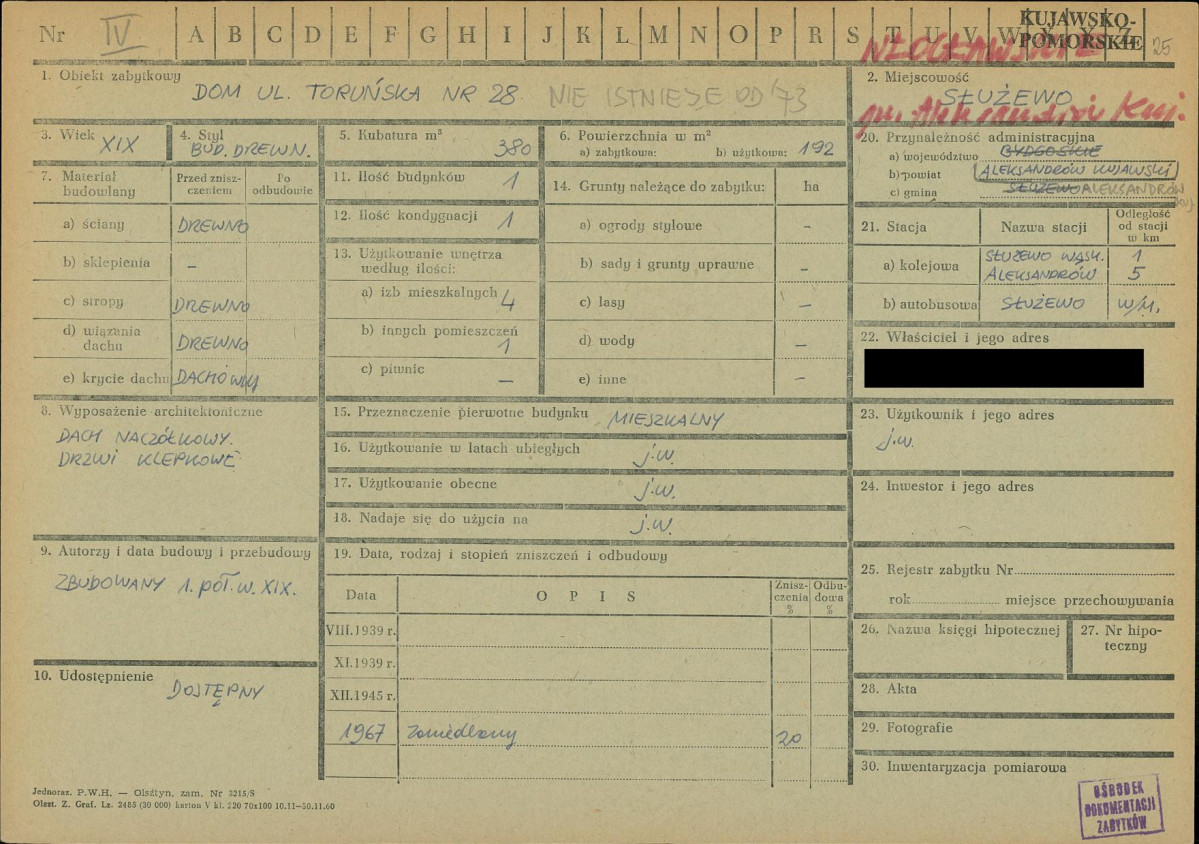 Nr IV A B C D E F G H I J K L M N O P R S T U V W X Y Z KUJAWSKO-
POMORSKIE 25
WŁOCŁAWSKIE
1. Obiekt zabytkowy
DOM UL. TORUŃSKA NR 28. NIE ISTNIEJE OD '73
2. Miejscowość
SŁUŻEWO
gm. Aleksandrów Kuj.
3. Wiek XIX
4. Styl
BUD. DREWN.
5. Kubatura m³
380
6. Powierzchnia w m²
a) zabytkowa: b) użytkowa: 192
20. Przynależność administracyjna
a) województwo BYDGOSKIE
b) powiat ALEKSANDRÓW KUJAWSKI
c) gmina SŁUŻEWO ALEKSANDRÓW
KUJ.
7. Materiał
budowlany
Przed znisz-
czeniem
Po
odbudowie
a) ściany DREWNO
b) sklepienia –
c) stropy DREWNO
d) wiązania
dachu DREWNO
e) krycie dachu DACHÓWKI
11. Ilość budynków 1
12. Ilość kondygnacji 1
13. Użytkowanie wnętrza
według ilości:
a) izb mieszkalnych 4
b) innych pomieszczeń
1
c) piwnic –
14. Grunty należące do zabytku: ha
a) ogrody stylowe –
b) sady i grunty uprawne –
c) lasy –
d) wody –
e) inne –
21. Stacja Nazwa stacji Odległość
od stacji
w km
a) kolejowa SŁUŻEWO WĄSK. 1
ALEKSANDRÓW 5
b) autobusowa SŁUŻEWO W/M.
22. Właściciel i jego adres
8. Wyposażenie architektoniczne
DACH NACZÓŁKOWY.
DRZWI KLEPKOWE
15. Przeznaczenie pierwotne budynku MIESZKALNY
16. Użytkowanie w latach ubiegłych j.w.
17. Użytkowanie obecne j.w.
18. Nadaje się do użycia na j.w.
23. Użytkownik i jego adres
j.w.
24. Inwestor i jego adres
9. Autorzy i data budowy i przebudowy
ZBUDOWANY 1. poł. w. XIX.
19. Data, rodzaj i stopień zniszczeń i odbudowy
Data OPIS Znisz-
czenia
%
Odbu-
dowa
%
VIII.1939 r.
XI.1939 r.
XII.1945 r.
1967 zaniedbany 20
25. Rejestr zabytku Nr
rok miejsce przechowywania
26. Nazwa księgi hipotecznej
27. Nr hipo-
teczny
10. Udostępnienie
DOSTĘPNY
28. Akta
29. Fotografie
30. Inwentaryzacja pomiarowa
Jednoraz. P.W.H. — Olsztyn, zam. Nr 3215/S
Olszt. Z. Graf. Lz. 2485 (30 000) karton V kl. 220 70x100 10.11-30.11.60
OŚRODEK
DOKUMENTACJI
ZABYTKÓW